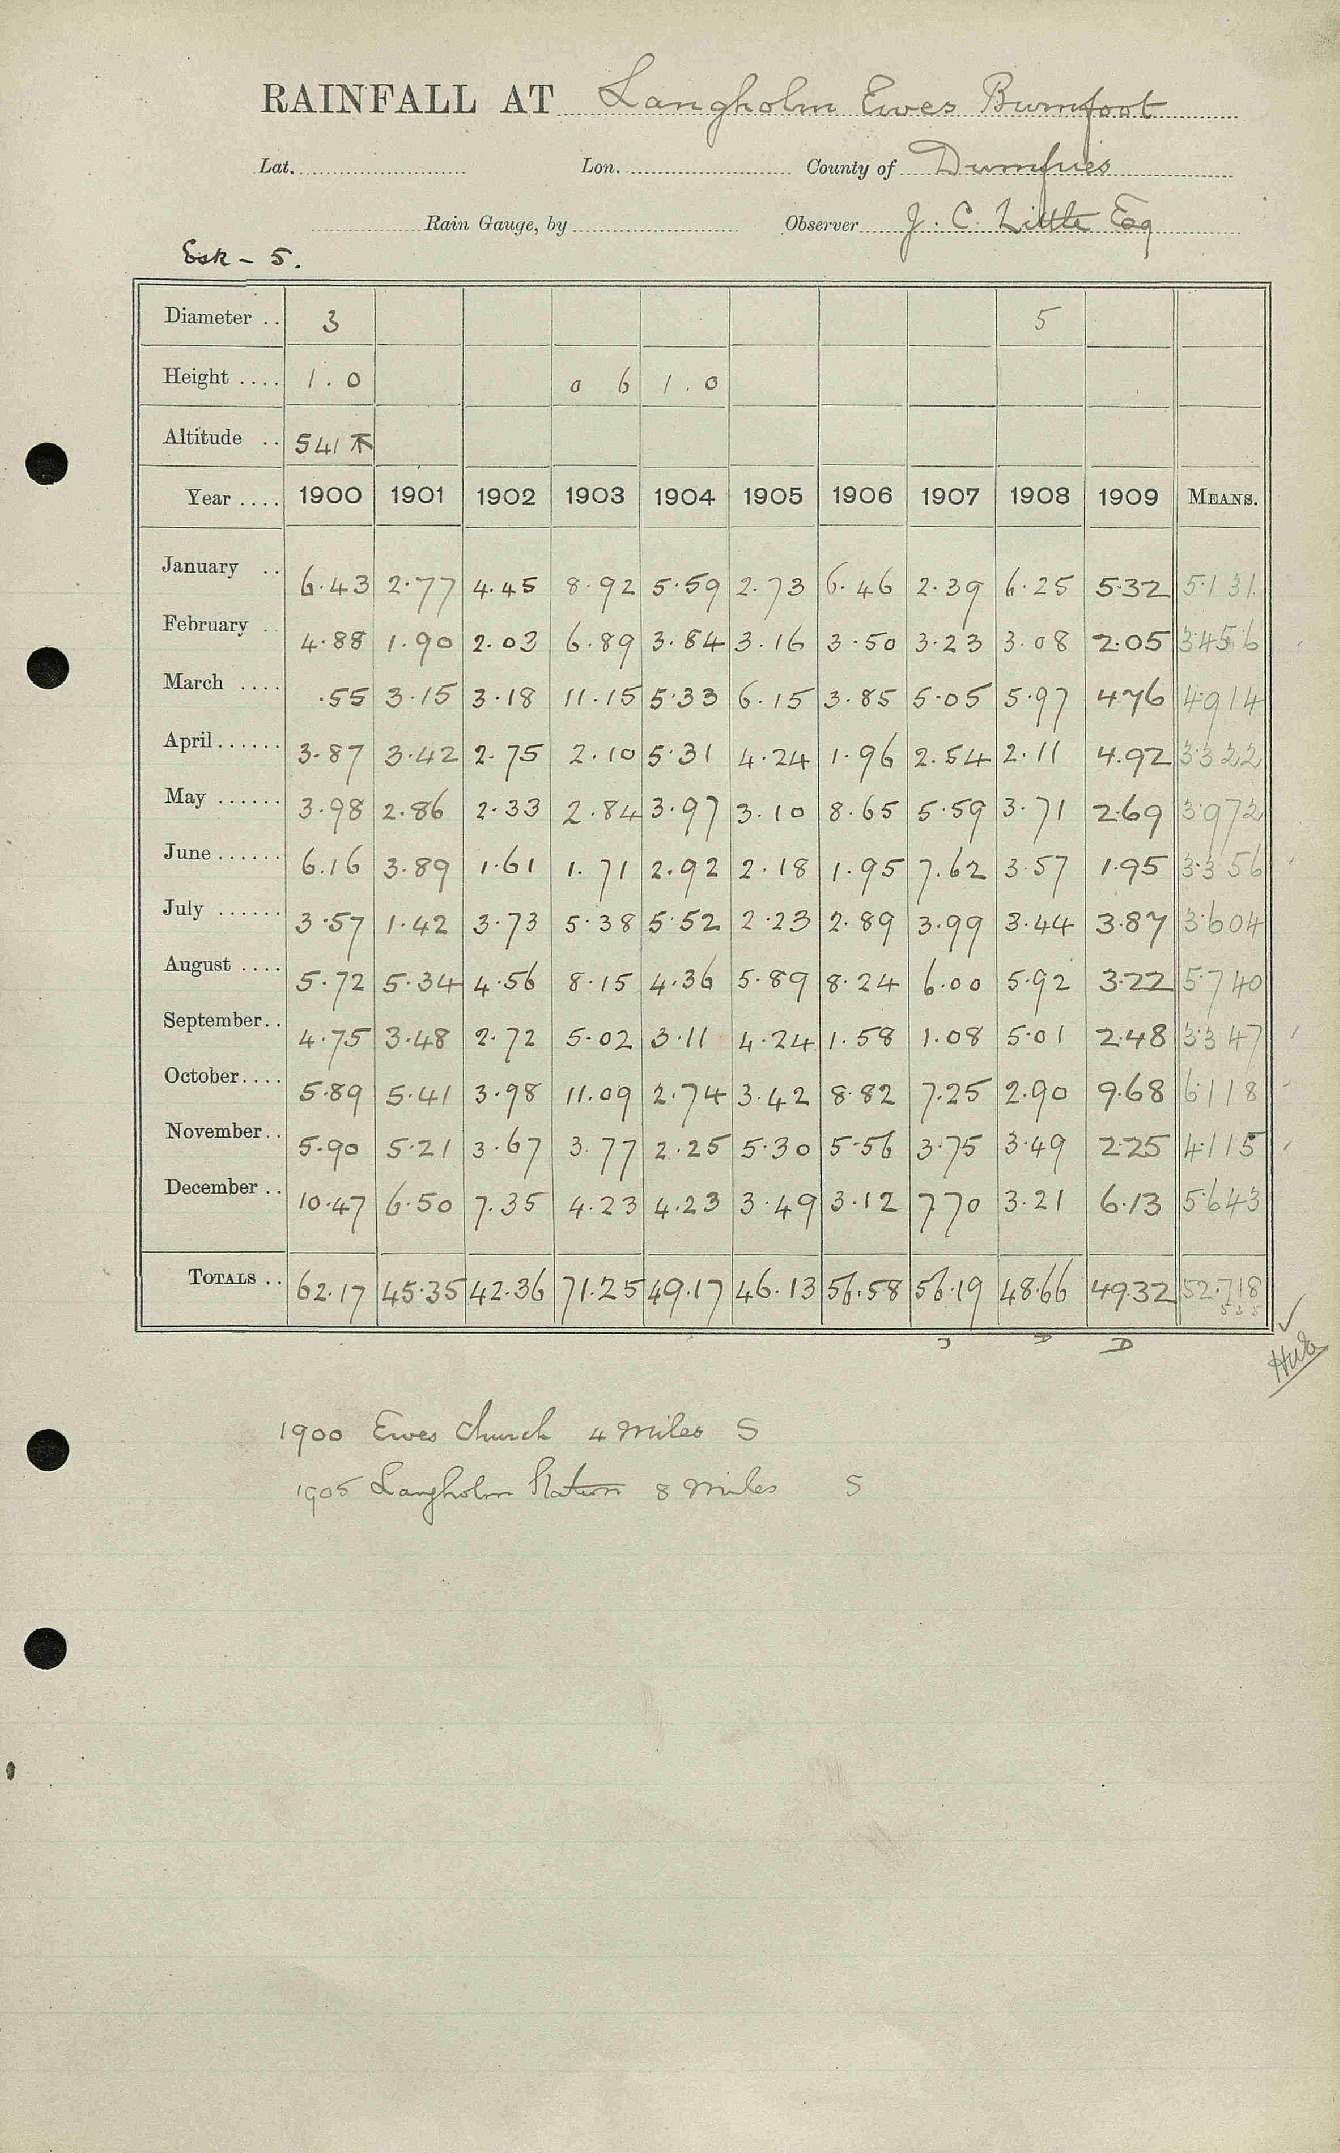 RAINFALL AT Langholm Ewes Burnfoot
Lat. Lon. County of Dumfries
Rain Gauge, by Observer J. C. Little Esq
Esk - 5.
Diameter .. 3 5
Height .... 1.0 0 6 1.0
Altitude .. 541
Year .... 1900 1901 1902 1903 1904 1905 1906 1907 1908 1909 MEANS.
January .. 6.43 2.77 4.45 8.92 5.59 2.73 6.46 2.39 6.25 5.32 5.131
February .. 4.88 1.90 2.03 6.89 3.84 3.16 3.50 3.23 3.08 2.05 3.456
March .... .55 3.15 3.18 11.15 5.33 6.15 3.85 5.05 5.97 4.76 4.914
April...... 3.87 3.42 2.75 2.10 5.31 4.24 1.96 2.54 2.11 4.92 3.322
May ...... 3.98 2.86 2.33 2.84 3.97 3.10 8.65 5.59 3.71 2.69 3.972
June...... 6.16 3.89 1.61 1.71 2.92 2.18 1.95 7.62 3.57 1.95 3.356
July ...... 3.57 1.42 3.73 5.38 5.52 2.23 2.89 3.99 3.44 3.87 3.604
August .... 5.72 5.34 4.56 8.15 4.36 5.89 8.24 6.00 5.92 3.22 5.740
September.. 4.75 3.48 2.72 5.02 3.11 4.24 1.58 1.08 5.01 2.48 3.347
October.... 5.89 5.41 3.98 11.09 2.74 3.42 8.82 7.25 2.90 9.68 6.118
November.. 5.90 5.21 3.67 3.77 2.25 5.30 5.56 3.75 3.49 2.25 4.115
December .. 10.47 6.50 7.35 4.23 4.23 3.49 3.12 7.70 3.21 6.13 5.643
TOTALS .. 62.17 45.35 42.36 71.25 49.17 46.13 56.58 56.19 48.66 49.32 52.718
D D
1900 Ewes Church 4 Miles S
1905 Langholm Station 8 Miles S